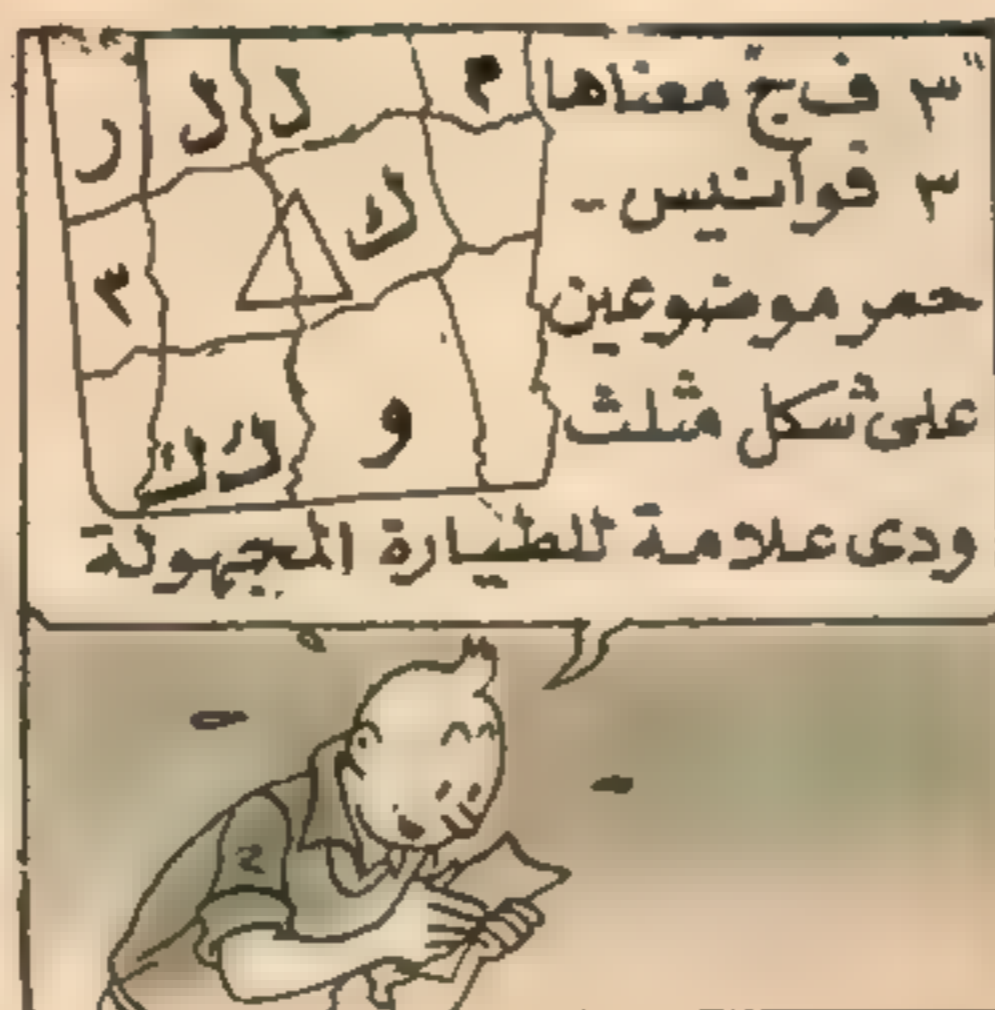 "٣ ف ح" معناها
٣ فوانيس -
حمر موضوعين
على شكل مثلث
ودى علامة للطيارة المجهولة
م د ك ر
ك
٣
و ك ك